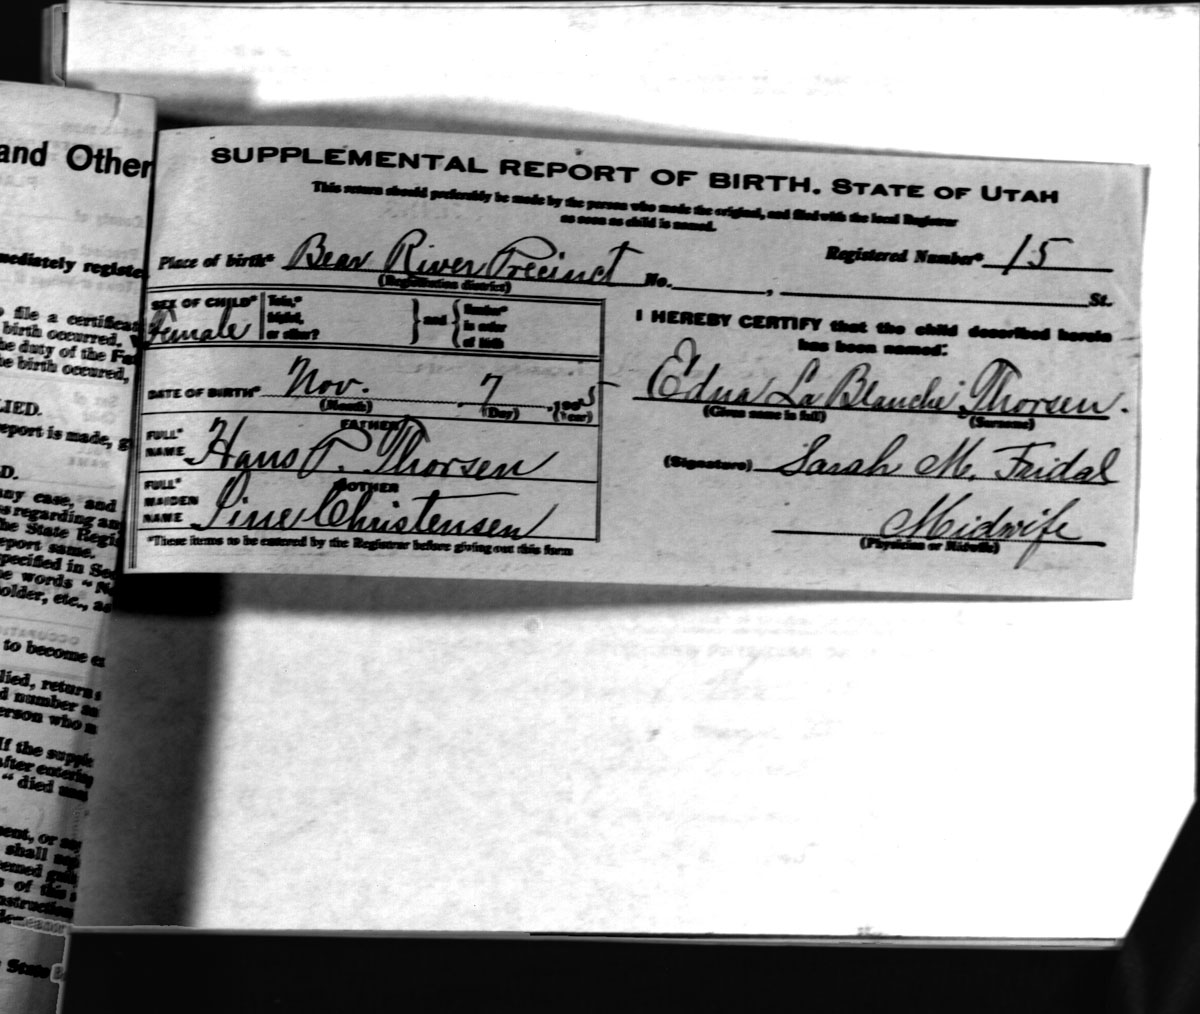 and Other
mediately registe
file a certificat
birth occurred.
he duty of the Fa
he birth occured,
LIED.
eport is made, g
D.
any case, and
s regarding an
the State Regi
eport same.
specified in Sec
e words "N
older, etc., as
to become e
lied, returns
d number
erson who
If the supple
After entering
"died
ent, or
shall
of this
State
SUPPLEMENTAL REPORT OF BIRTH. STATE OF UTAH
This return should preferably be made by the person who made the original, and filed with the local Registrar
as soon as child is named.
Registered Number* 15
Place of birth* Bear River Precinct No. , St.
(Registration district)
SEX OF CHILD* Female
Twin,*
triplet,
or other?
} and {
Number*
in order
of birth
DATE OF BIRTH* Nov. 7 1905
(Month) (Day) (Year)
FATHER
FULL*
NAME Hans P. Thorsen
MOTHER
FULL*
MAIDEN
NAME Sine Christensen
*These items to be entered by the Registrar before giving out this form
I HEREBY CERTIFY that the child described herein
has been named:
Edna La Blanche Thorsen.
(Given name in full) (Surname)
(Signature) Sarah M. Fridal
Midwife
(Physician or Midwife)